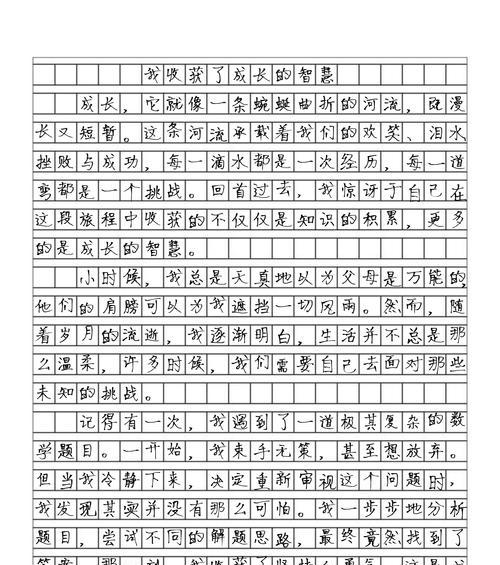 我收获了成长的智慧
成长，它就像一条蜿蜒曲折的河流，既漫
长又短暂。这条河流承载着我们的欢笑、泪水
挫败与成功，每一滴水都是一次经历，每一道
弯都是一个挑战。回首过去，我惊讶于自己在
这段旅程中收获的不仅仅是知识的积累，更多
的是成长的智慧。
小时候，我总是天真地以为父母是万能的，
他们的肩膀可以为我遮挡一切风雨。然而，随
着岁月的流逝，我逐渐明白，生活并不总是那
么温柔，许多时候，我们需要自己去面对那些
未知的挑战。
记得有一次，我遇到了一道极其复杂的数
学题目。一开始，我束手无策，甚至想放弃。
但当我冷静下来，决定重新审视这个问题时，
我发现其实并没有那么可怕。我一步步地分析
题目，尝试不同的解题思路，最终竟然找到了